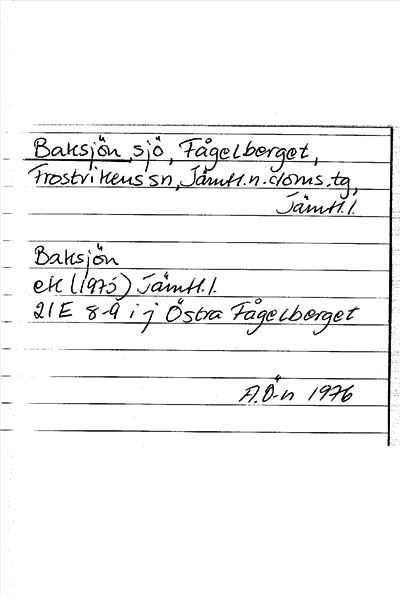 Baksjön, sjö, Fågelberget,
Frostvikens sn, Jämtl.n.doms.tg,
Jämtl.l.
Baksjön
ek (1975) Jämtl.l.
21E 8-9 i-j Östra Fågelberget
A.Ö-n 1976